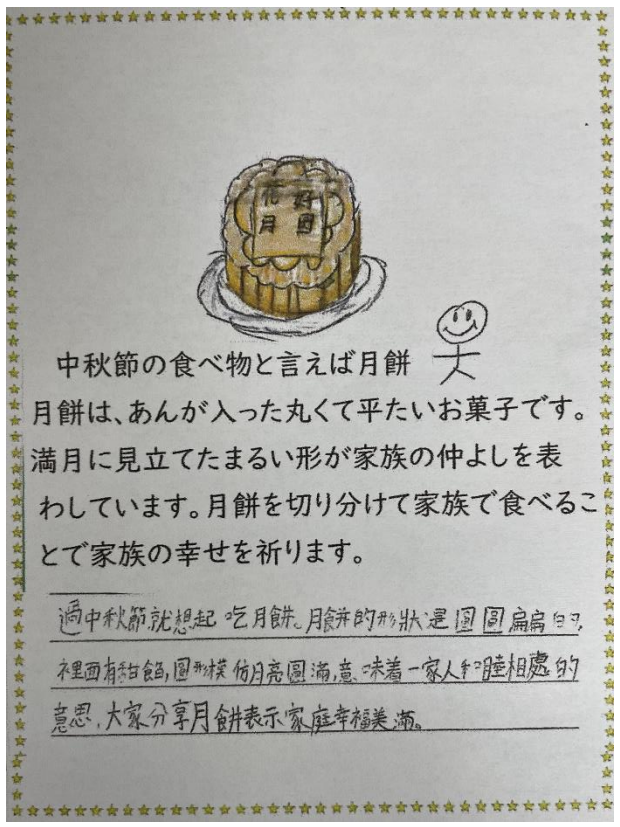 花好
月圓
中秋節の食べ物と言えば月餅
月餅は、あんが入った丸くて平たいお菓子です。
満月に見立てたまるい形が家族の仲よしを表
わしています。月餅を切り分けて家族で食べるこ
とで家族の幸せを祈ります。
過中秋節就想起吃月餅。月餅的形狀還圓圓扁扁的,
裡面有甜餡,圓形模仿月亮圓滿,意味着一家人和睦相處的
意思,大家分享月餅表示家庭幸福美滿。